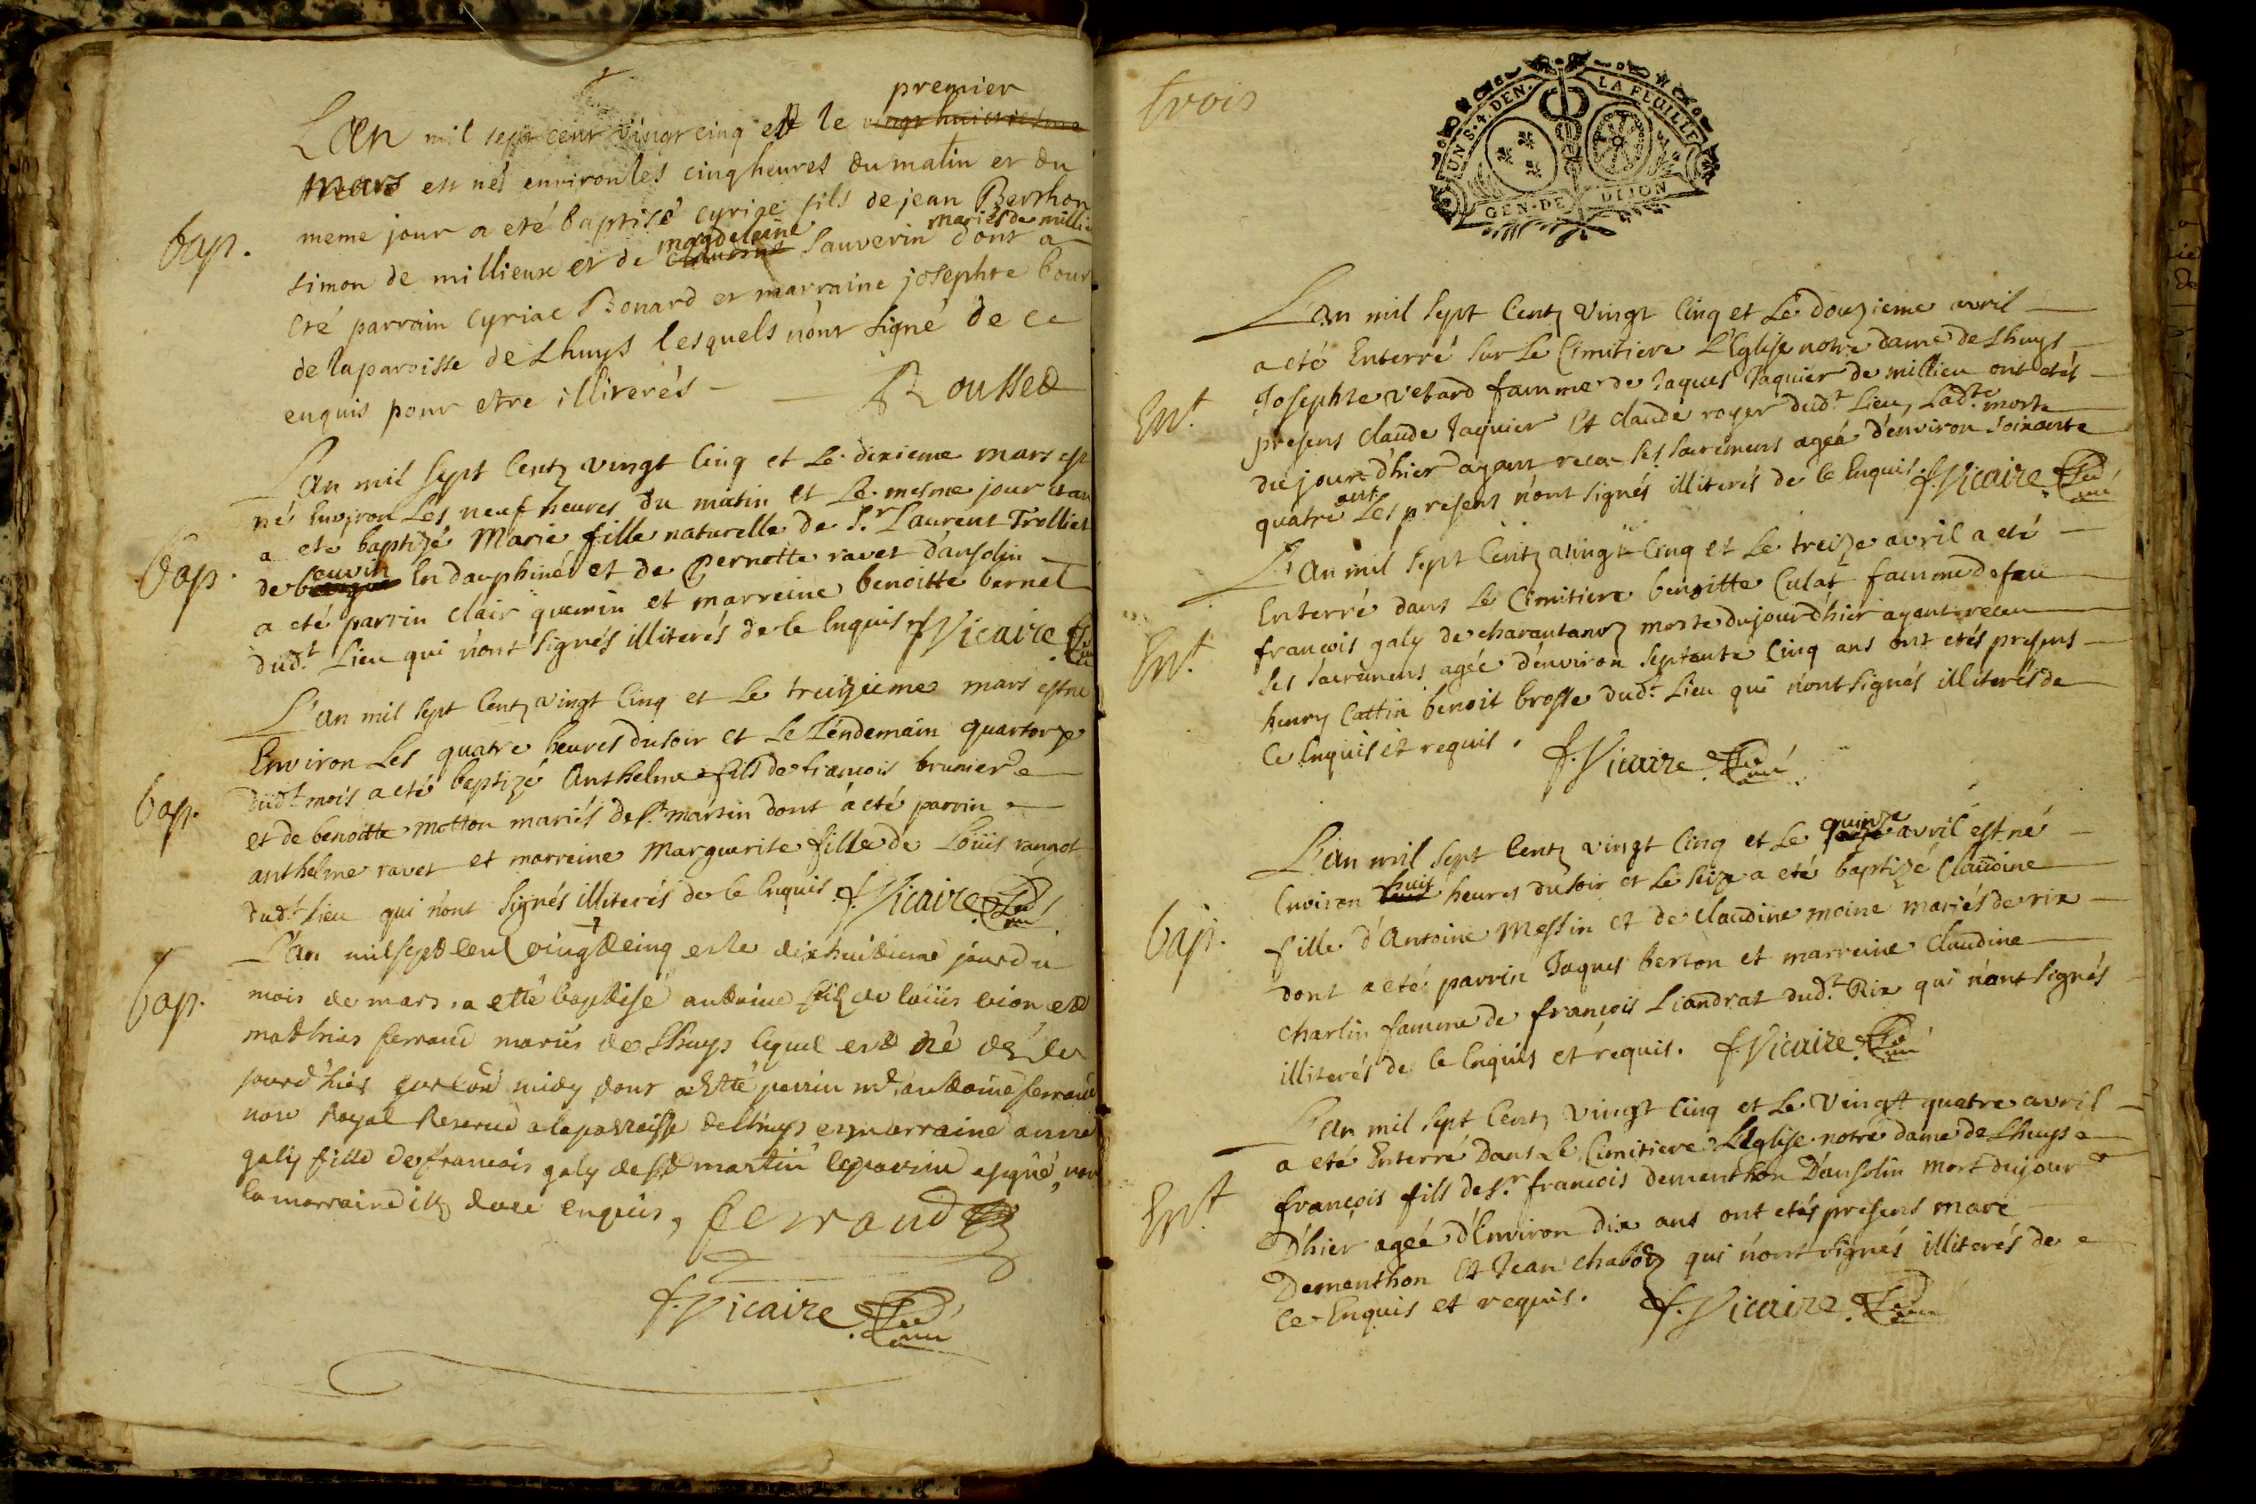 premier
Lan mil sept cent vingt cinq et le vingt huictiesme
mars est né environ les cinq heures du matin et du
meme jour a eté baptisé cyriac fils de jean Berthon
mariés de millieu
magdeleine
simon de millieux et de Sauverin dont a
bap.
eté parrain cyriac Bonard et marraine josephte bour
de laparoisse de Lhuys lesquels n'ont signé de ce
enquis pour etre illiterés — Rousset
L'an mil sept Centz vingt Cinq et Le dixieme mars est
né Environ Les neuf heures du matin et Le mesme jour
a eté baptizé Marie fille naturelle de S.r Laurent Trolliet
bap.
de bouvin En dauphiné et de Pernette ravet d'ansolin
a eté parrin clair guemin et marreine benoitte bernet
dud.t Lieu qui n'ont signés illiterés de Ce Enquis f. Vicaire
L'an mil sept Centz vingt Cinq et Le treizieme mars est né
Environ Les quatre heures du soir et Le Lendemain quatorze
dud.t mois a eté baptizé Anthelme fils de francois brunier
bap.
et de benoitte motton mariés de S.t martin dont a eté parrin
anthelme ravet et marreine Marguerite fille de Loüis
dud.t Lieu qui n'ont signés illiterés de Ce Enquis f. Vicaire
L'an mil sept cent vingt cinq et le dix huitieme jour du
bap.
mois de mars a etté baptisé antoine fils de loüis et
ferrand mariés de Lhuys lequel est né dès le
jourd'hier midy dont a etté parrin m.e antoine ferrand
Royal Reservé a la paroisse de Lhuys et marraine anne
galy fille de francois galy de S.t martin le parrin a signé, non
la marraine de ce enquis, ferrand
f. Vicaire
trois
UN S. 4. DEN. LA FEUILLE
GEN. DE DIJON
L'an mil sept Centz vingt Cinq et Le douzieme avril
a eté Enterré sur Le Cimitiere L'Eglise notre dame de Lhuys
Josephte vetard famme de Jaques Jaquier de millieu ont etés
Ent.
presens claude Jaquier et claude royer dud.t Lieu, Lad.te morte
du jour d'hier ayant receu ses sacremens ageé d'environ soixante
quatre ans Les presens n'ont signés illiterés de Ce Enquis. f. Vicaire
L'an mil sept Centz vingt Cinq et Le treize avril a eté
Enterré dans Le Cimitiere benoitte Culat famme de feu
Ent.
francois galy de charantanz morte du jourd'hier ayant receu
ses sacremens ageé d'environ septante Cinq ans ont etés presens
henry Cattin benoit brosse dud.t Lieu qui n'ont signés illiterés de
Ce Enquis et requis. f. Vicaire
L'an mil sept Centz vingt Cinq et Le quinze avril est né
Environ huit heures du soir et Le seize a eté baptizé Claudine
bap.
fille d'Antoine Messin et de claudine moine mariés de rix
dont a eté parrin Jaques berton et marreine Claudine
charlin famme de francois Liandrat dud.t Rix qui n'ont signés
illiterés de Ce Enquis et requis. f. Vicaire
L'an mil sept Centz vingt Cinq et Le vingt quatre avril
a eté Enterré dans Le Cimitiere L'Eglise notre dame de Lhuys
Ent.
francois fils de S.r francois dementhon D'ansolin mort du jour
D'hier ageé d'Environ dix ans ont etés presens marc
Dementhon et Jean chabod qui n'ont signés illiterés de
Ce Enquis et requis. f. Vicaire